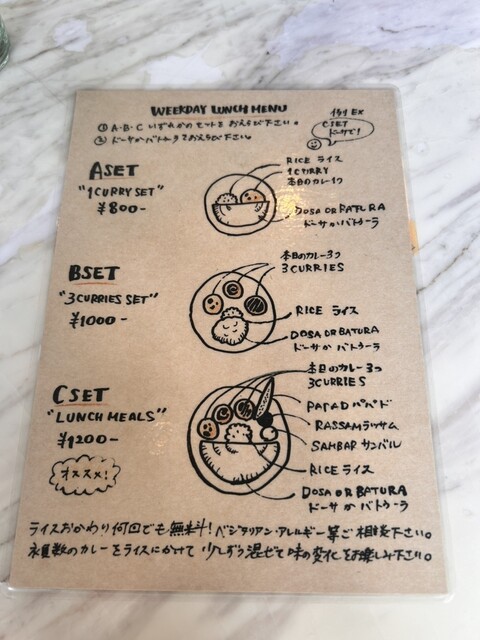 WEEKDAY LUNCH MENU
① A・B・C いずれかのセットをおえらび下さい。
② ドーサかバトゥーラをおえらび下さい。
例 EX
C SET
ドーサで!
A SET
"1 CURRY SET"
¥800-
RICE ライス
1 CURRY
本日のカレー1つ
DOSA OR BATURA
ドーサかバトゥーラ
B SET
"3 CURRIES SET"
¥1000-
本日のカレー3つ
3 CURRIES
RICE ライス
DOSA OR BATURA
ドーサ か バトゥーラ
C SET
"LUNCH MEALS"
¥1200-
オススメ!
本日のカレー3つ
3 CURRIES
PAPAD パパド
RASSAM ラッサム
SAMBAR サンバル
RICE ライス
DOSA OR BATURA
ドーサ か バトゥーラ
ライスおかわり何回でも無料! ベジタリアン・アレルギー等ご相談下さい。
複数のカレーをライスにかけて 少しずつ混ぜて味の変化をお楽しみ下さい。